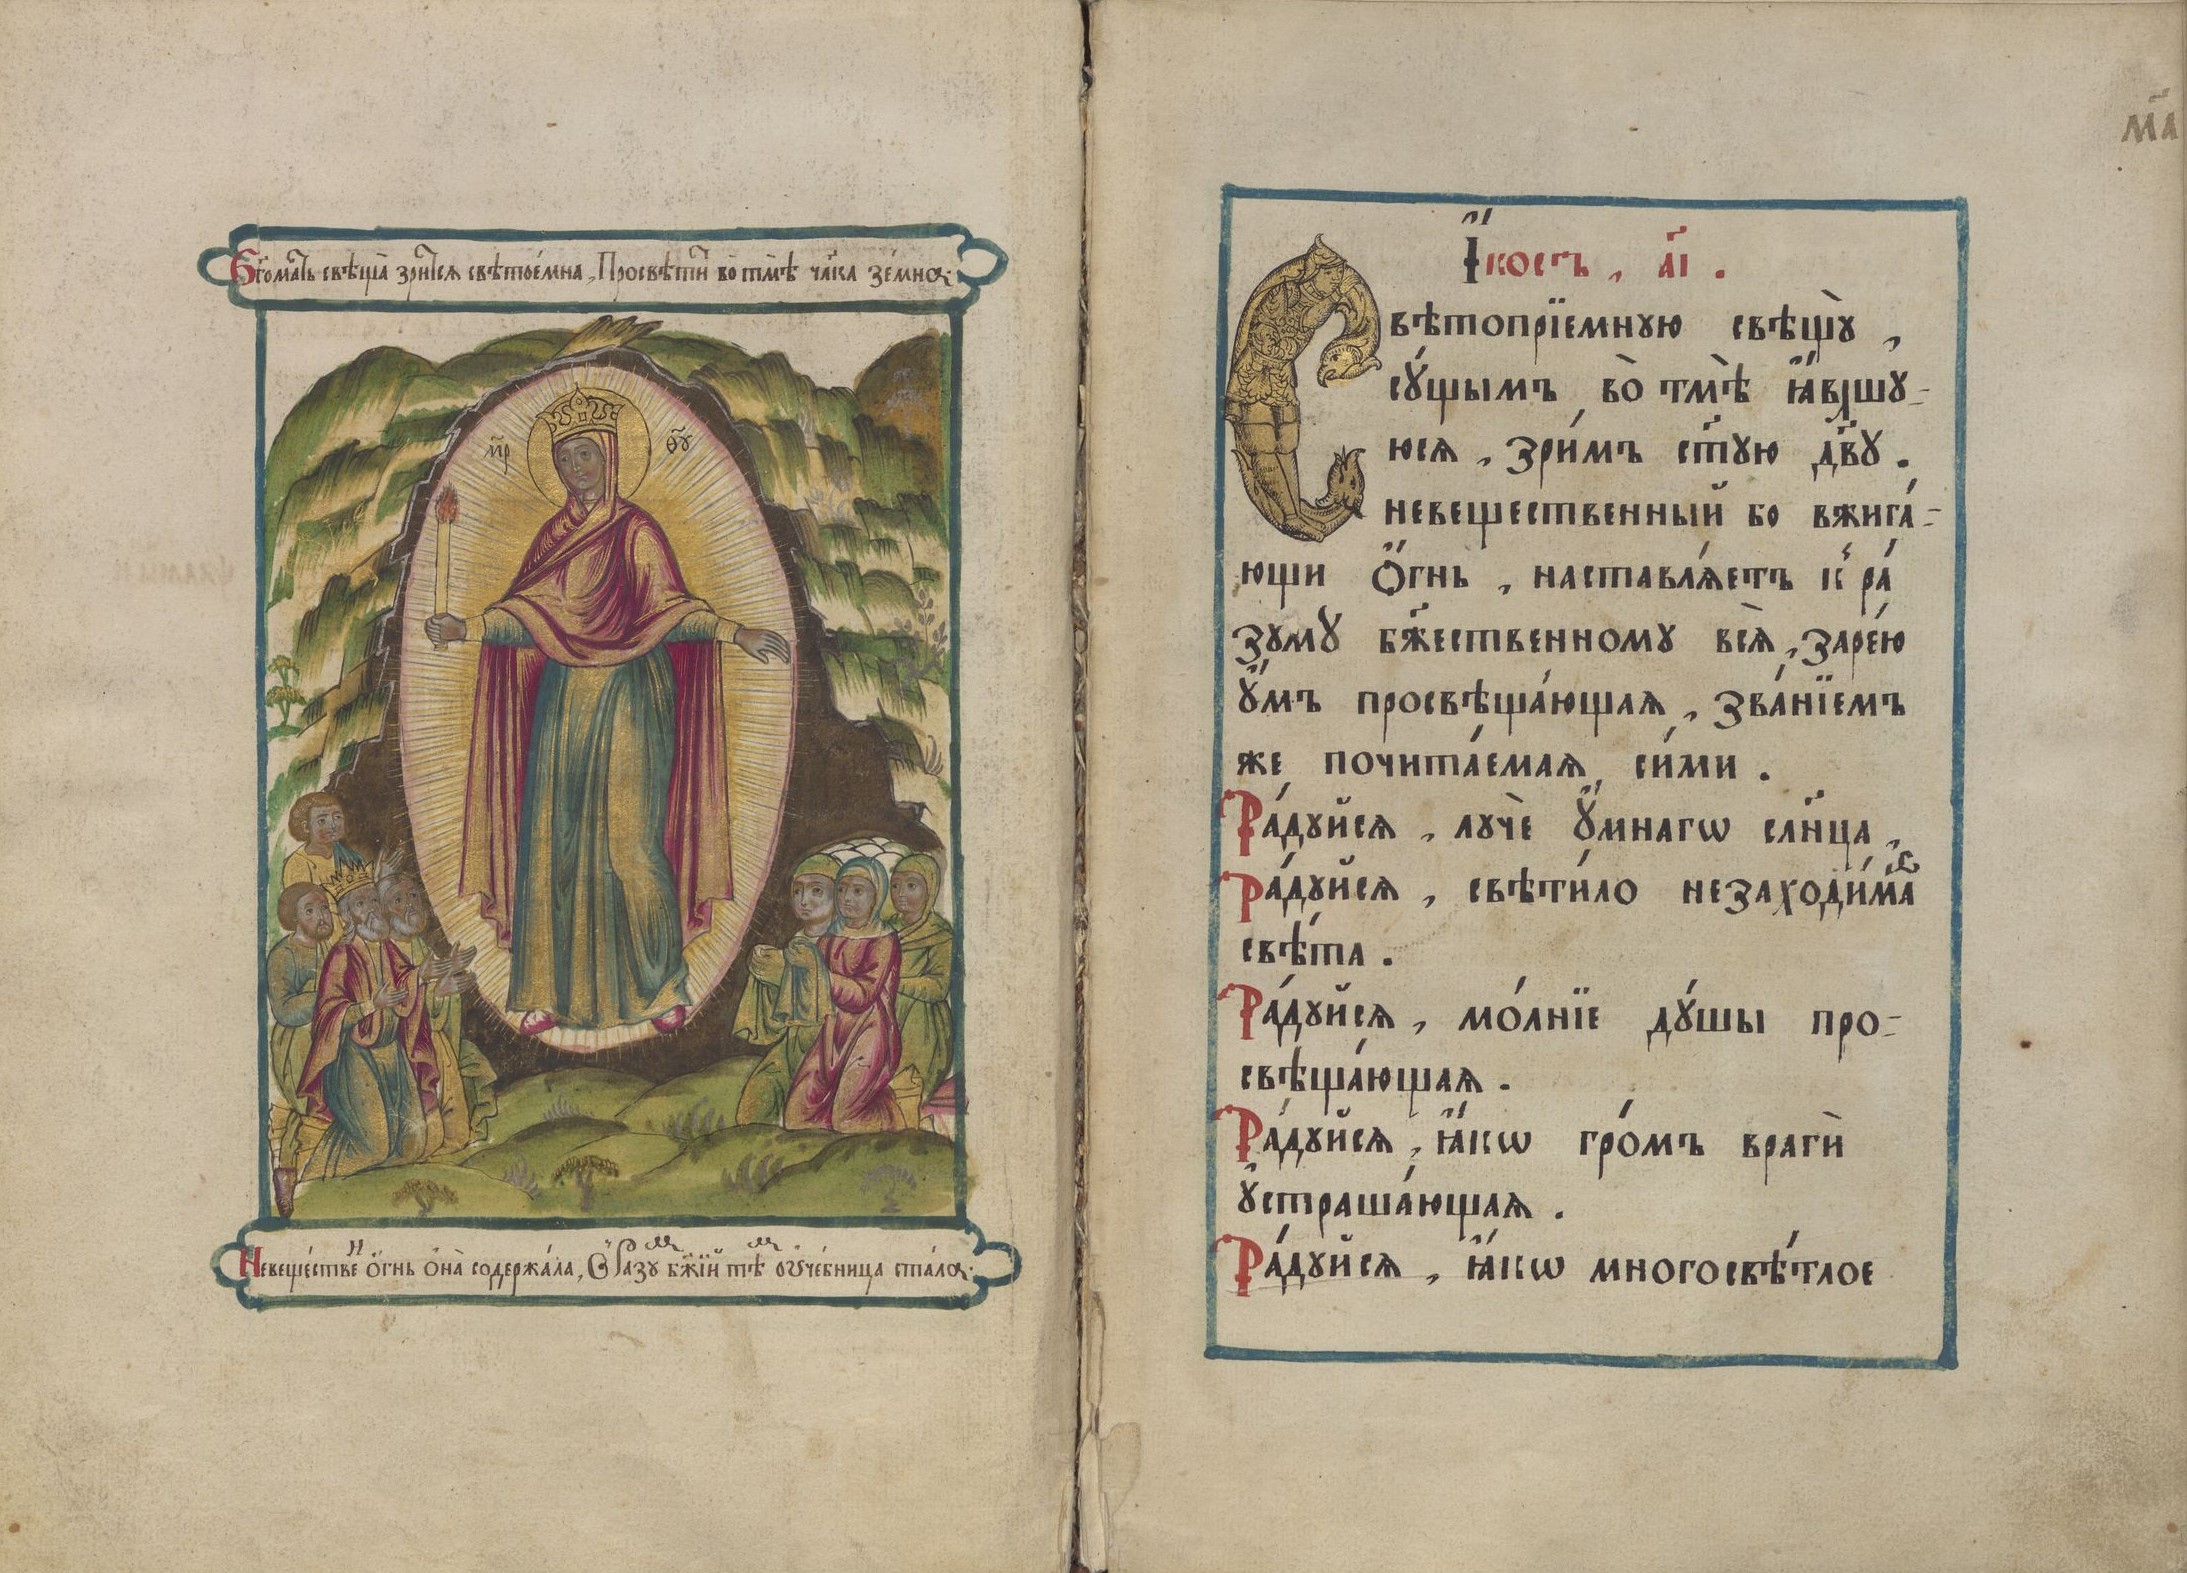 Бг҃омат҃ь свѣща̀ зрит҃ся свѣтое́мна, Просвѣти҃ во̀ тмѣ̀ чл҃ка зе́мна.
мр҃
ѳу҃
Невеще́стве н ѻ҆́гнь ѻ҆на̀ содержа́ла, Ѡ разу бж҃їй тѣ м оу҆че́бница ста́ла.
м҃а
І҆́косъ, а҃і .
Свѣтопрїемную свѣщу̀,
су́щымъ во̀ тмѣ̀ ꙗ҆́вльшу-
юся, зри́мъ ст҃ую дв҃у.
невещественный бо вжига́-
ющи ѻ҆́гнь, наставлѧ́етъ к ра́
зуму бж҃ественному всѧ̀, заре́ю
у҆́мъ просвѣща́ющаѧ, зва́нїемъ
же почита́емаѧ, си́ми .
Ра́дуйсѧ, лучѐ у҆́мнагѡ сл҃нца,
Ра́дуйсѧ, свѣти́ло незаходи́маг
свѣ́та .
Ра́дуйсѧ, мо́лнїе ду́шы про-
свѣща́ющаѧ .
Ра́дуйсѧ, ꙗ҆́кѡ гро́мъ враги̇̀
устраша́ющаѧ .
Ра́дуйсѧ, ꙗ҆́кѡ многосвѣ́тлое